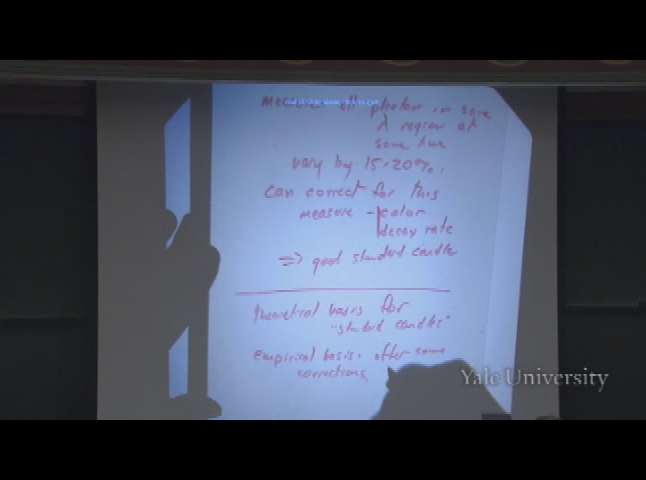 measure all photon in some
λ region at
some time
vary by 15-20%.
can correct for this
measure - color
decay rate
=> good standard candle
theoretical basis for
"standard candles"
empirical basis. after some
corrections,
Yale University